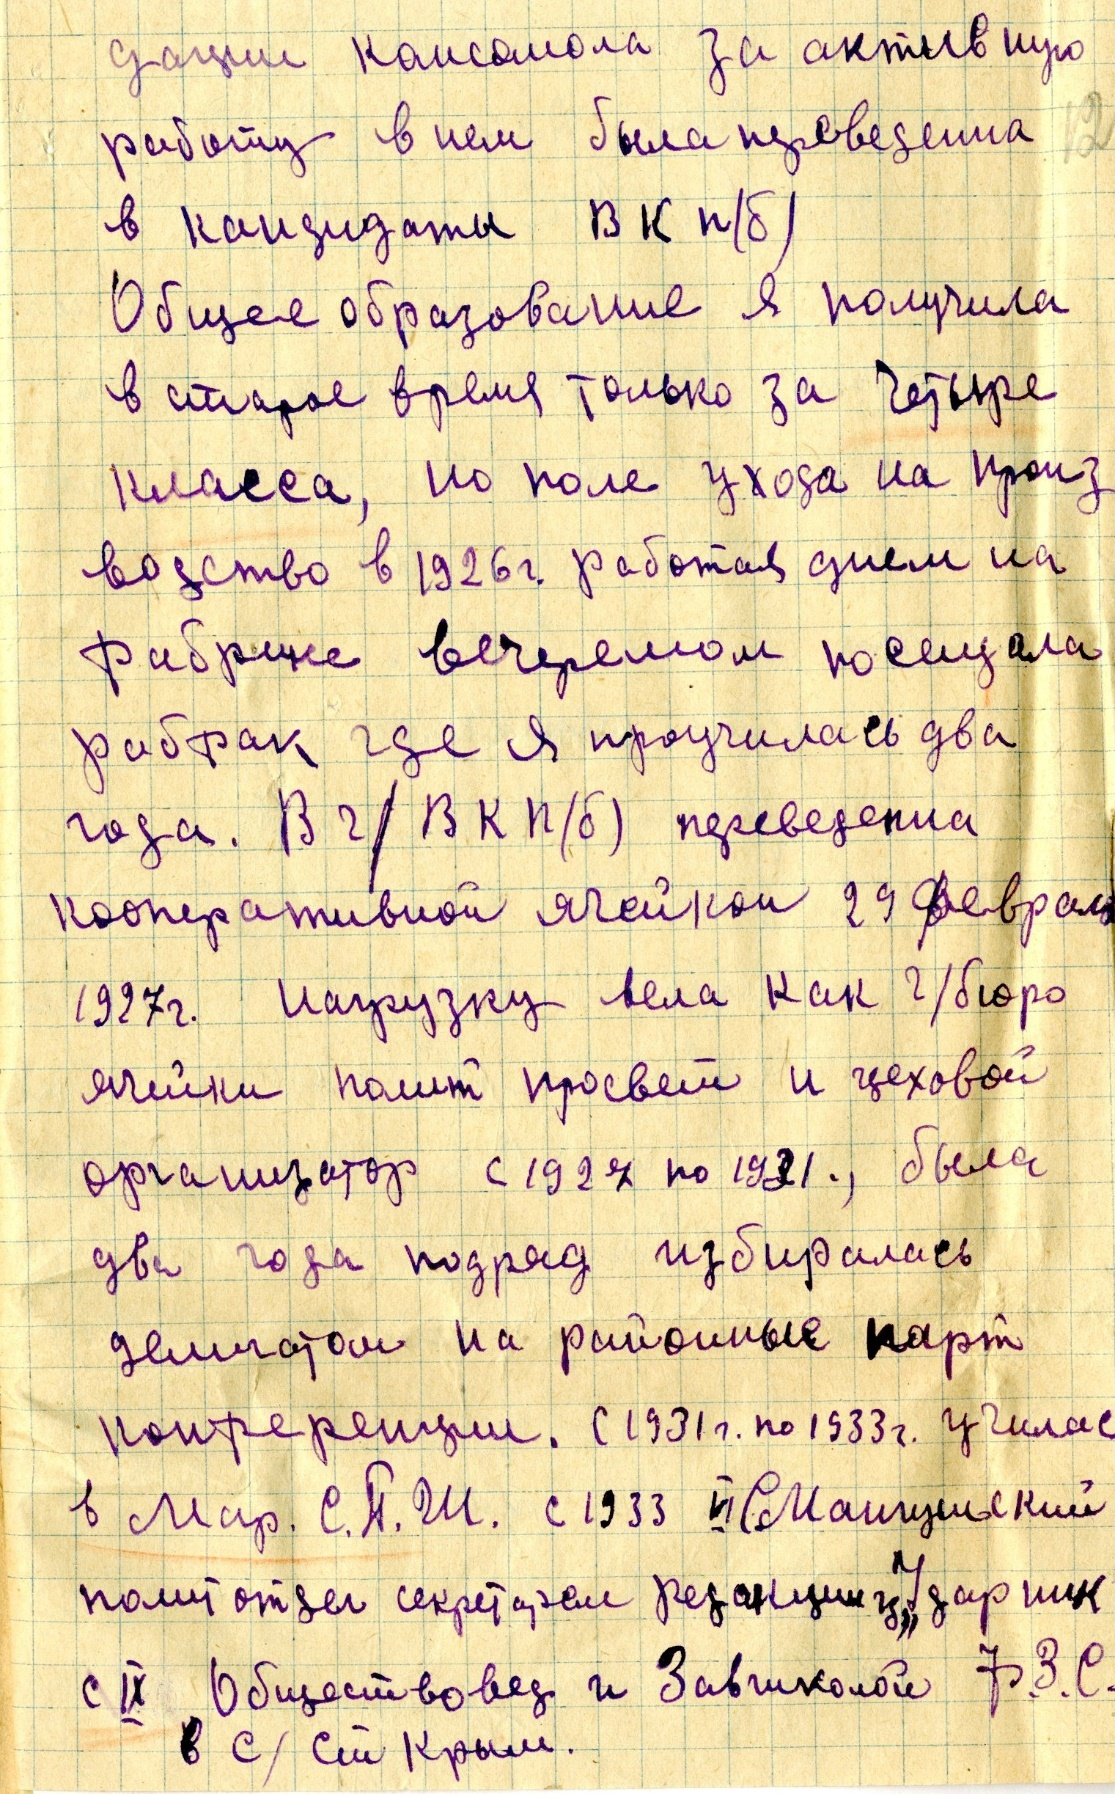 дации комсомола за активную
работу в нем была переведенна
12
в кандидаты ВКП/б)
Общее образование я получила
в старое время только за четыре
класса, но поле ухода на произ
водство в 1926г. работая днем на
фабрике вечеремом посещала
рабфак где я проучилась два
года. В ч/ВКП/б) переведенна
кооперативной ячейкой 29 февраля
1927г. Нагрузку вела как ч/бюро
ячейки полит просвет и цеховой
организатор с 1927 по 1931., была
два года подряд избиралась
делигатом на районные парт
конференции. С 1931г. по 1933г. училас
в Мар. С.П.Ш. с 1933 VI Мангушский
политотдел секретарем редакции "Ударник
с IX Обществовед и Завшколой Ф.З.С.
в С/ Ст Крым.